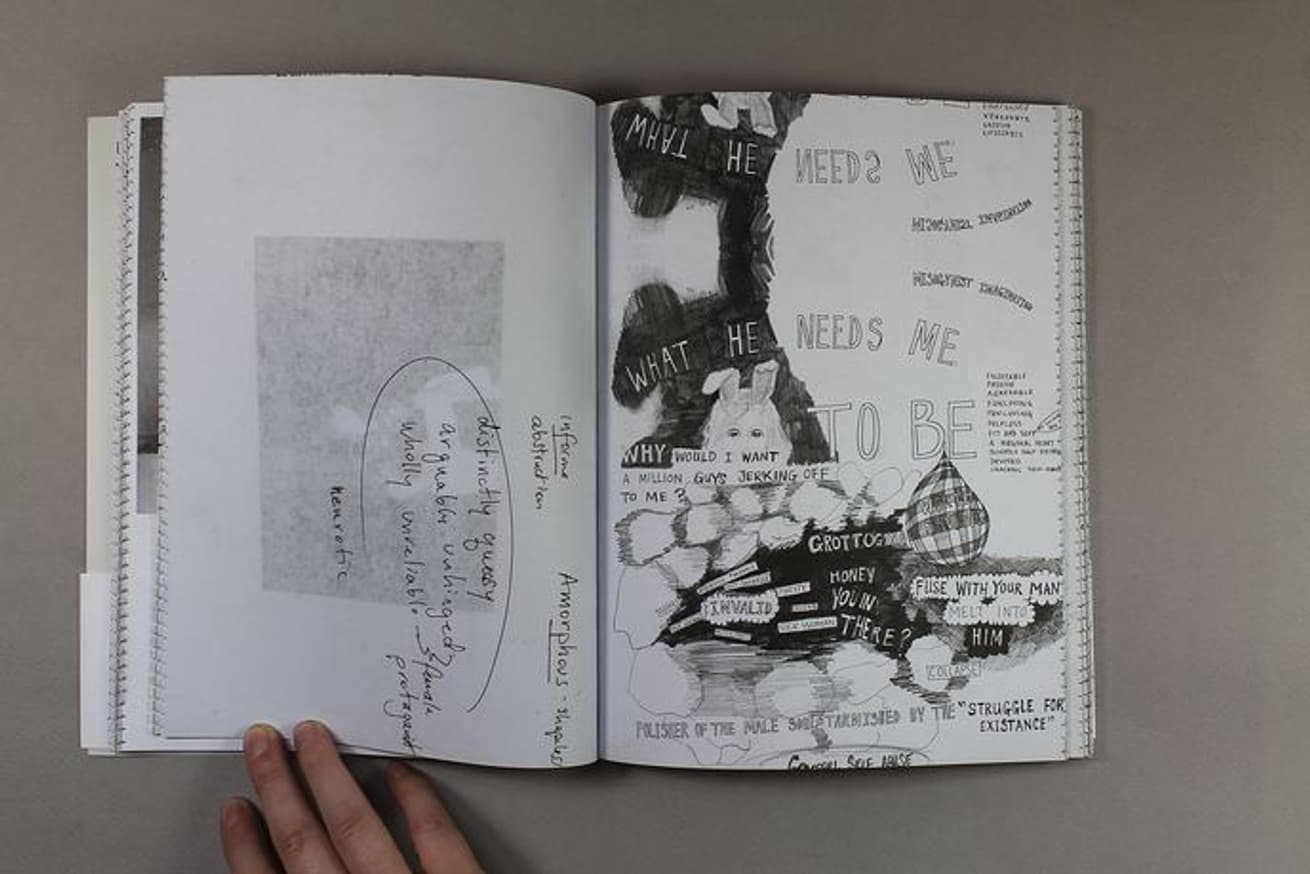 informe
abstraction
Amorphous - shapeless
distinctly queer,
arguably unhinged,
wholly unreliable
female
protagonist
neurotic
WHAT HE NEEDS ME
MISOGYNIST IMAGINATION
MISOGYNIST IMAGINATION
WHAT HE NEEDS ME
TO BE
PASSIVE
AGREEABLE
HELPLESS
DEVOTED
WHY WOULD I WANT
A MILLION GUYS JERKING OFF
TO ME?
GROTTO
HONEY
YOU IN
THERE?
INVALID
FUSE WITH YOUR MAN
MELT INTO
HIM
COLLAPSE
POLISHER OF THE MALE TARNISHED BY THE "STRUGGLE FOR
EXISTANCE"
GENERAL SELF ABUSE